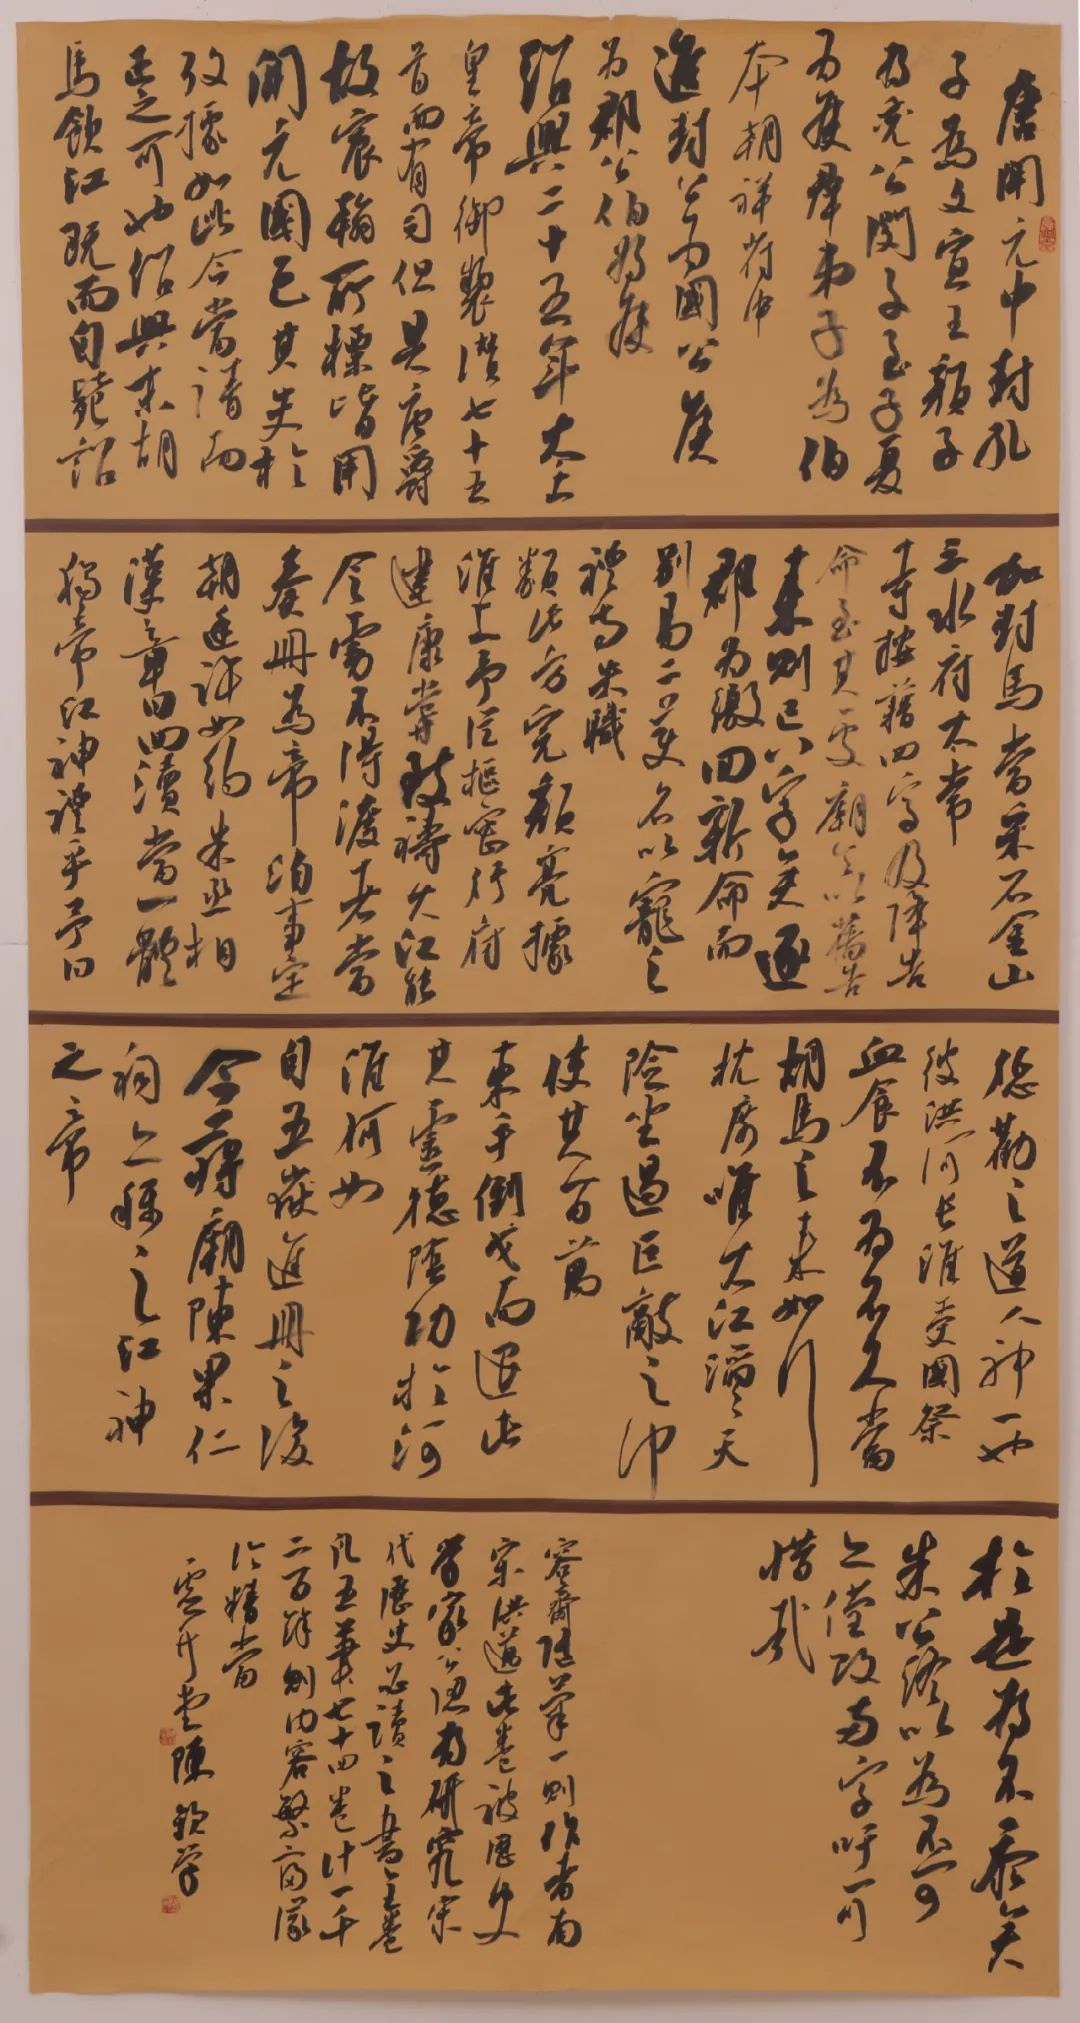 唐開元中封孔
子為文宣王顏子
為兗公閔子至子夏
為侯羣弟子為伯
本朝祥符中
進封公為國公侯
為郡公伯為侯
紹興二十五年太上
皇帝御製贊七十五
首而有司但具唐爵
故宸翰所標皆用
開元國邑其失於
攷據如此今當請而
正之可也紹興末胡
馬飲江既而自斃詔
加封馬當采石金山
三水府太常
寺按籍四字及降告
命至其一處廟令以舊告
來則已八字矣逐
郡為繳回新命而
別易二美名以寵之
禮寺失職
類此方完顏亮據
淮上予從樞密行府
建康嘗致禱大江能
令虜不得渡者當
奏冊為帝洎事定
朝廷許如約朱丞相
漢章曰四瀆當一體
獨帝江神禮乎予曰
懲勸之道人神一也
彼洪河長淮受國祭
血食不為不久當
胡馬之來如行
枕席唯大江滔滔天
險坐遏巨敵之衝
使其百萬
束手倒戈而退此
其靈德陰功於河
淮何如
自五嶽進冊之後
今蔣廟陳果仁
祠亦稱之江神
之帝
於是為不忝矣
朱公終以為不可
亦僅改兩字吁可
惜哉
容齋隨筆一則作者南
宋洪邁此卷被歷史
學家公認為研究宋
代歷史必讀之書全卷
凡五筆七十四卷計一千
二百餘則內容繁富議
論精當
陳